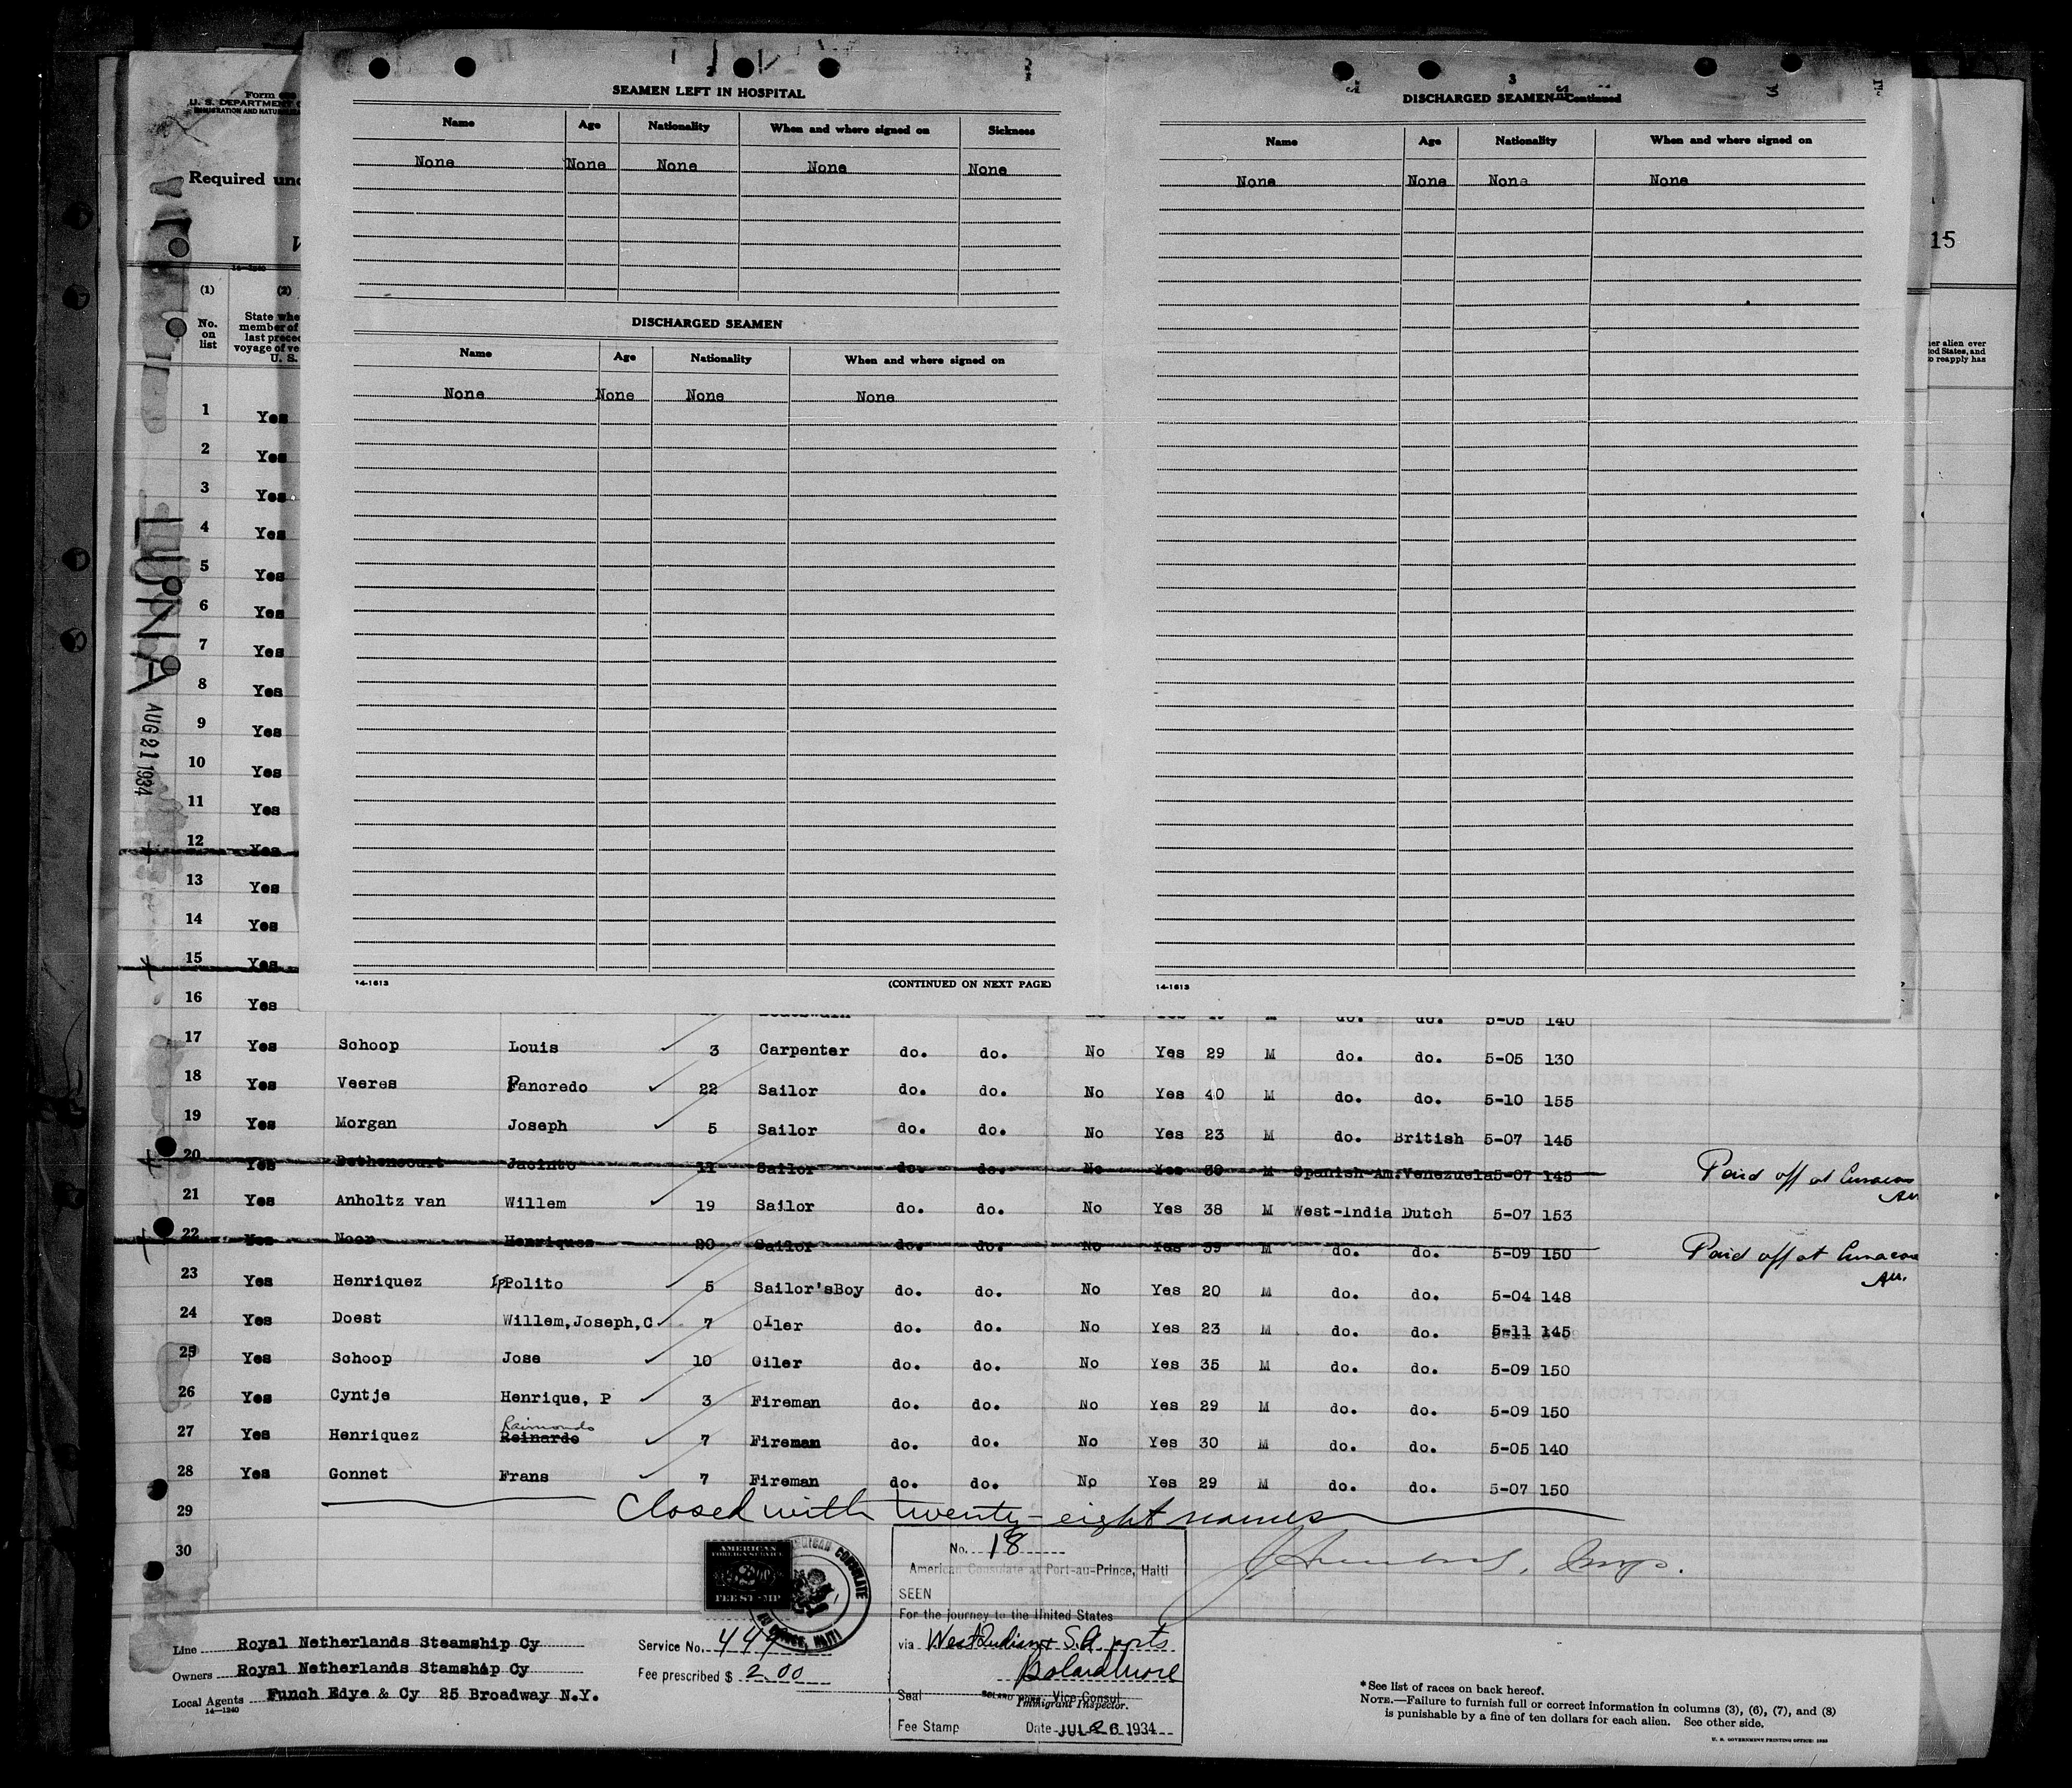 SEAMEN LEFT IN HOSPITAL
Name Age Nationality When and where signed on Sickness
None None None None None
DISCHARGED SEAMEN
Name Age Nationality When and where signed on
None None None None
14-1613 (CONTINUED ON NEXT PAGE)
3
DISCHARGED SEAMEN—Continued
Name Age Nationality When and where signed on
None None None None
14-1613
Form
U. S. DEPARTMENT
Required
15
14—1240
(1) (2)
No. on list
State
member of
last
voyage of
U. S.
alien over
States, and
reapply has
LUNA
AUG 21 1934
1 Yes
2 Yes
3 Yes
4 Yes
5 Yes
6 Yes
7 Yes
8 Yes
9 Yes
10 Yes
11 Yes
12 Yes
13 Yes
14 Yes
15 Yes
16 Yes do. do. 5-05 140
17 Yes Schoop Louis 3 Carpenter do. do. No Yes 29 M do. do. 5-05 130
18 Yes Veeres Pancredo 22 Sailor do. do. No Yes 40 M do. do. 5-10 155
19 Yes Morgan Joseph 5 Sailor do. do. No Yes 23 M do. British 5-07 145
20 Yes Bethencourt Jacinto 11 Sailor do. do. No Yes 39 M Spanish-Am. Venezuela 5-07 145 Paid off at Curacao
21 Yes Anholtz van Willem 19 Sailor do. do. No Yes 38 M West-India Dutch 5-07 153
22 Yes Noor Henriques 20 Sailor do. do. No Yes 39 M do. do. 5-09 150 Paid off at Curacao
23 Yes Henriquez IpPolito 5 Sailor'sBoy do. do. No Yes 20 M do. do. 5-04 148
24 Yes Doest Willem,Joseph,C 7 Oiler do. do. No Yes 23 M do. do. 5-11 145
25 Yes Schoop Jose 10 Oiler do. do. No Yes 35 M do. do. 5-09 150
26 Yes Cyntje Henrique, P 3 Fireman do. do. No Yes 29 M do. do. 5-09 150
Raimondo
27 Yes Henriquez Reinardo 7 Fireman do. do. No Yes 30 M do. do. 5-05 140
28 Yes Gonnet Frans 7 Fireman do. do. No Yes 29 M do. do. 5-07 150
29 Closed with twenty-eight names
30
AMERICAN
FOREIGN SERVICE
FEE STAMP
No. 18
American Consulate at Port-au-Prince, Haiti
SEEN
For the journey to the United States
via West Indian & S.A. ports
Seal Vice Consul.
Immigrant Inspector.
Fee Stamp Date JUL 26 1934
Line Royal Netherlands Steamship Cy
Owners Royal Netherlands Stamship Cy
Local Agents Funch Edye & Cy 25 Broadway N.Y.
14—1240
Service No. 449
Fee prescribed $ 2.00
*See list of races on back hereof.
NOTE.—Failure to furnish full or correct information in columns (3), (6), (7), and (8)
is punishable by a fine of ten dollars for each alien. See other side.
U. S. GOVERNMENT PRINTING OFFICE: